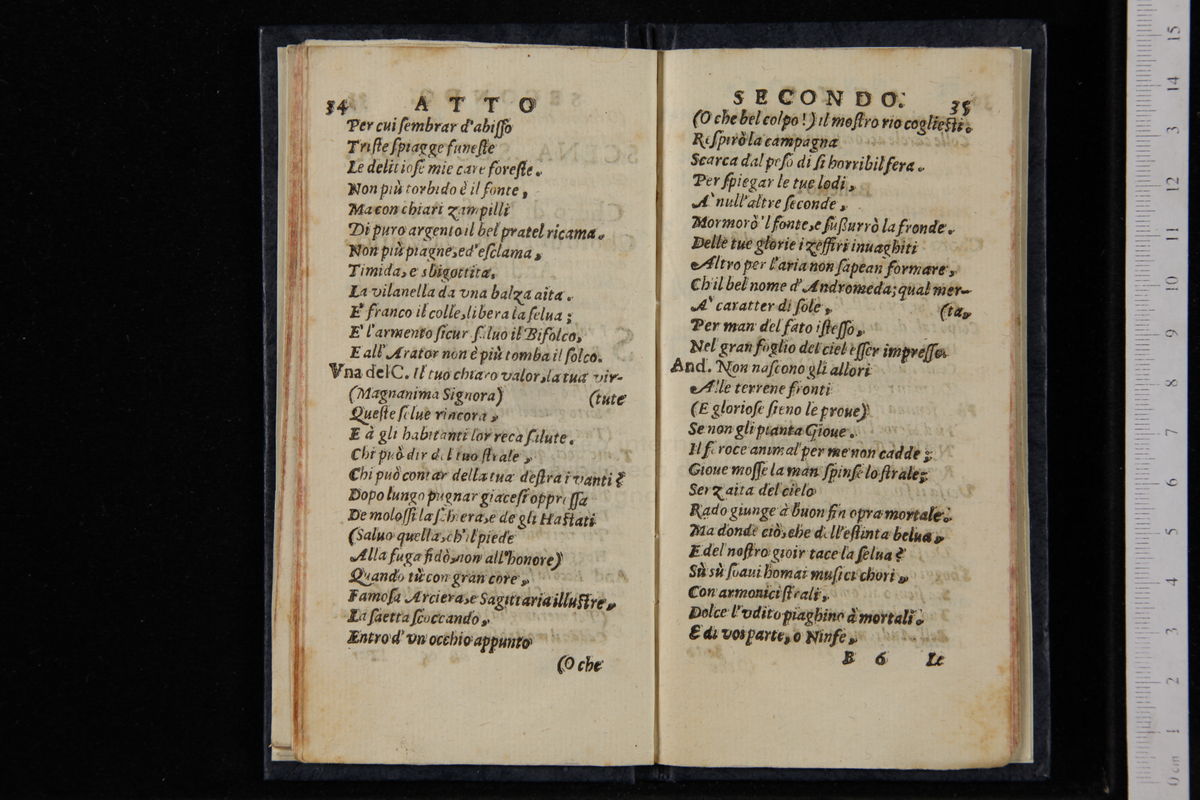 34 ATTO
Per cui ſembrar d'abiſſo
Triſte ſpiagge funeſte
Le delitioſe mie care foreſte.
Non più torbido è il fonte,
Ma con chiari zampilli
Di puro argento il bel pratel ricama.
Non più piagne, ed eſclama,
Timida, e sbigottita,
La vilanella da vna balza aita.
E' franco il colle, libera la ſelua;
E' l'armento ſicur ſaluo il Bifolco,
E all' Arator non è più tomba il ſolco.
Vna del C. Il tuo chiaro valor, la tua vir-
(Magnanima Signora) (tute
Queſte ſelue rincora,
E à gli habitanti lor reca ſalute.
Chi può dir del tuo ſtrale,
Chi può contar della tua deſtra i vanti?
Dopo lungo pugnar giaceſi oppreſſa
De moloſſi la ſchiera, e de gli Haſtati
(Saluo quella, ch'il piede
Alla fuga fidò, non all'honore)
Quando tù con gran core,
Famoſa Arciera, e Sagittaria illuſtre,
La ſaetta ſcoccando,
Entro d' vn occhio appunto
(O che
SECONDO. 35
(O che bel colpo!) il moſtro rio coglieſti.
Reſpirò la campagna
Scarca dal peſo di ſi horribil fera.
Per ſpiegar le tue lodi,
A' null'altre ſeconde,
Mormorò 'l fonte, e ſuſſurrò la fronde.
Delle tue glorie i zeffiri inuaghiti
Altro per l'aria non ſapean formare,
Ch'il bel nome d' Andromeda; qual mer-
A' caratter di ſole, (ta,
Per man del fato iſteſſo,
Nel gran foglio del ciel eſſer impreſſo.
And. Non naſcono gli allori
Alle terrene fronti
(E glorioſe ſieno le proue)
Se non gli pianta Gioue.
Il feroce animal per me non cadde;
Gioue moſſe la man, ſpinſe lo ſtrale;
Senz aita del cielo
Rado giunge à buon fin opra mortale.
Ma donde ciò, che dell'eſtinta belua,
E del noſtro gioir tace la ſelua?
Sù sù ſoaui homai muſici chori,
Con armonici ſtrali,
Dolce l'vdito piaghino à mortali.
E di voi parte, o Ninfe,
B 6 Le